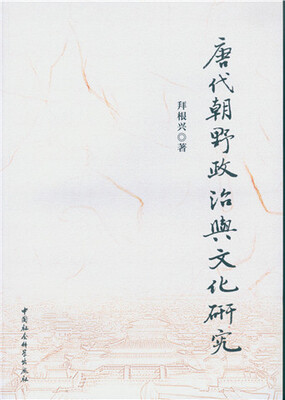 唐代朝野政治與文化研究
拜根兴◎著
中国社会科学出版社